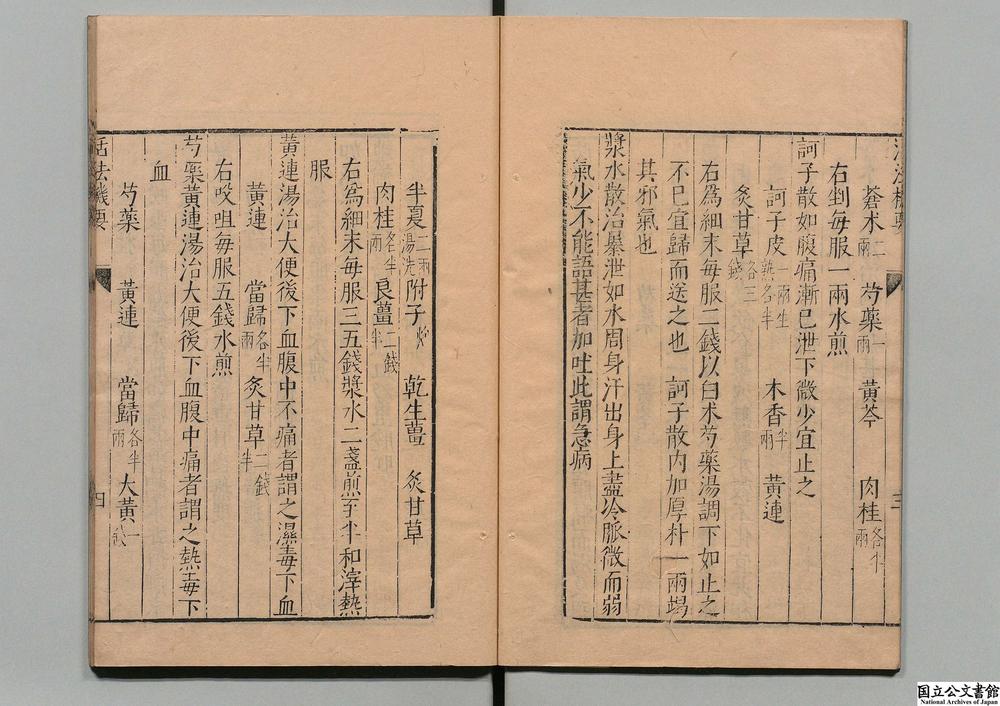 蒼术二兩 芍藥一兩 黃芩 肉桂各半兩
右剉每服一兩水煎
訶子散如腹痛漸已泄下微少宜止之
訶子皮一兩生熟各半 木香半兩 黃連
炙甘草各三錢
右爲細末每服二錢以白术芍藥湯調下如止之
不已宜歸而送之也 訶子散內加厚朴一兩竭
其邪氣也
漿水散治暴泄如水周身汗出身上盡冷脈微而弱
氣少不能語甚者加吐此謂急病
三
半夏二兩湯洗 附子炮 乾生薑 炙甘草
肉桂各半兩 良薑二錢半
右爲細末每服三五錢漿水二盞煎至半和滓熱
服
黃連湯治大便後下血腹中不痛者謂之濕毒下血
黃連 當歸各半兩 炙甘草二錢半
右㕮咀每服五錢水煎
芍藥黃連湯治大便後下血腹中痛者謂之熱毒下
血
芍藥 黃連 當歸各半兩 大黃一錢
活法機要 四
国立公文書館
National Archives of Japan